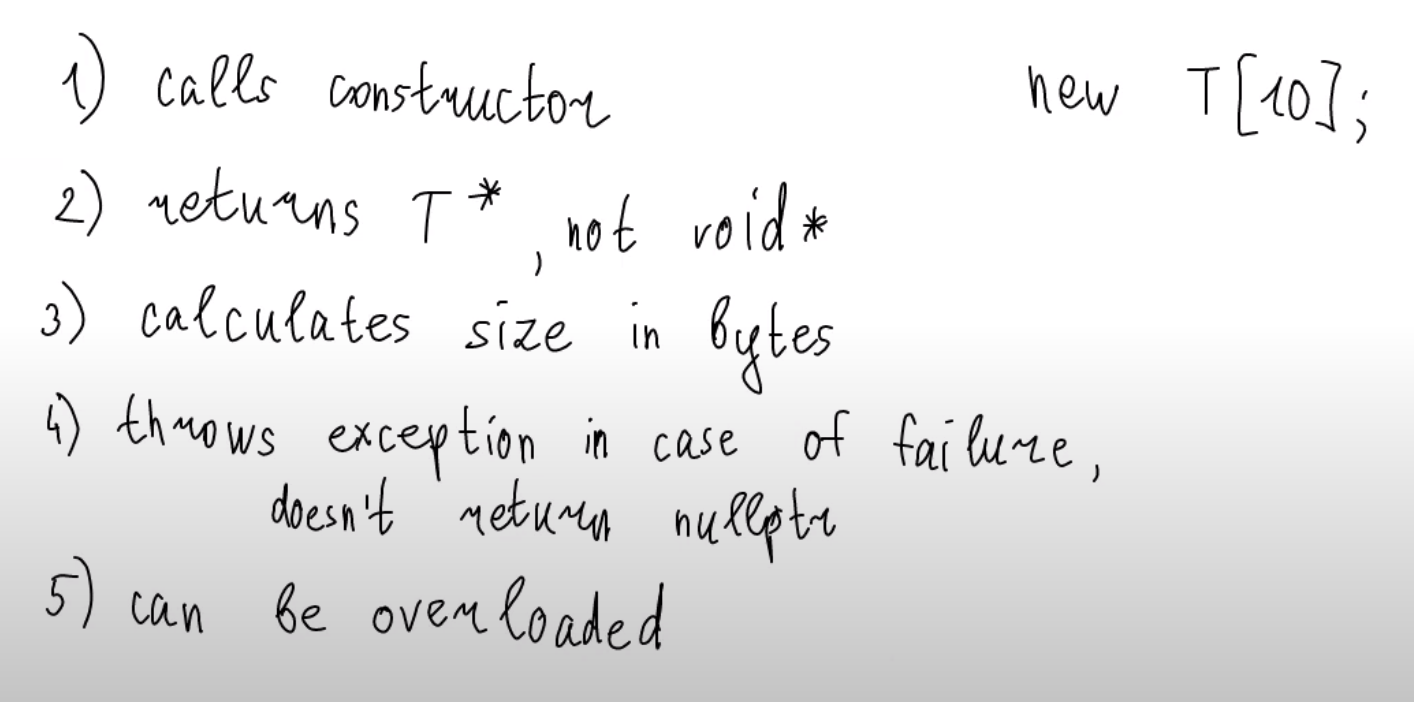 1) calls constructor
new T[10];
2) returns T*, not void*
3) calculates size in bytes
4) throws exception in case of failure,
doesn't return nullptr
5) can be overloaded